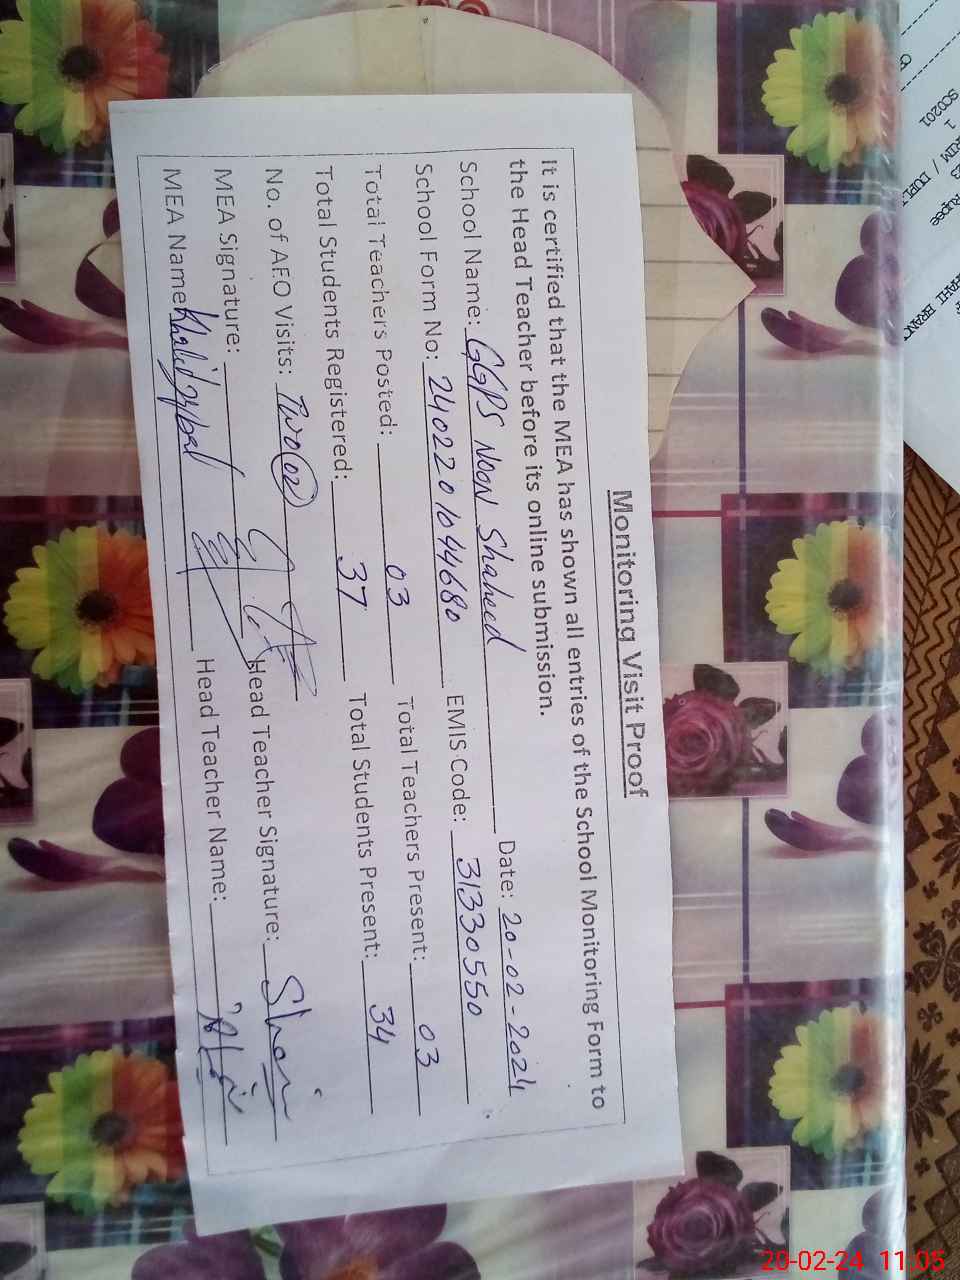 Monitoring Visit Proof
It is certified that the MEA has shown all entries of the School Monitoring Form to
the Head Teacher before its online submission.
School Name: GGPS Noon Shaheed Date: 20-02-2024
School Form No: 2402201044680 EMIS Code: 31330550
Total Teachers Posted: 03 Total Teachers Present: 03
Total Students Registered: 37 Total Students Present: 34
No. of AEO Visits: Two 02
MEA Signature: Head Teacher Signature:
MEA Name: Khalid Head Teacher Name:
SC0201
1
Rupee
20-02-24 11:05